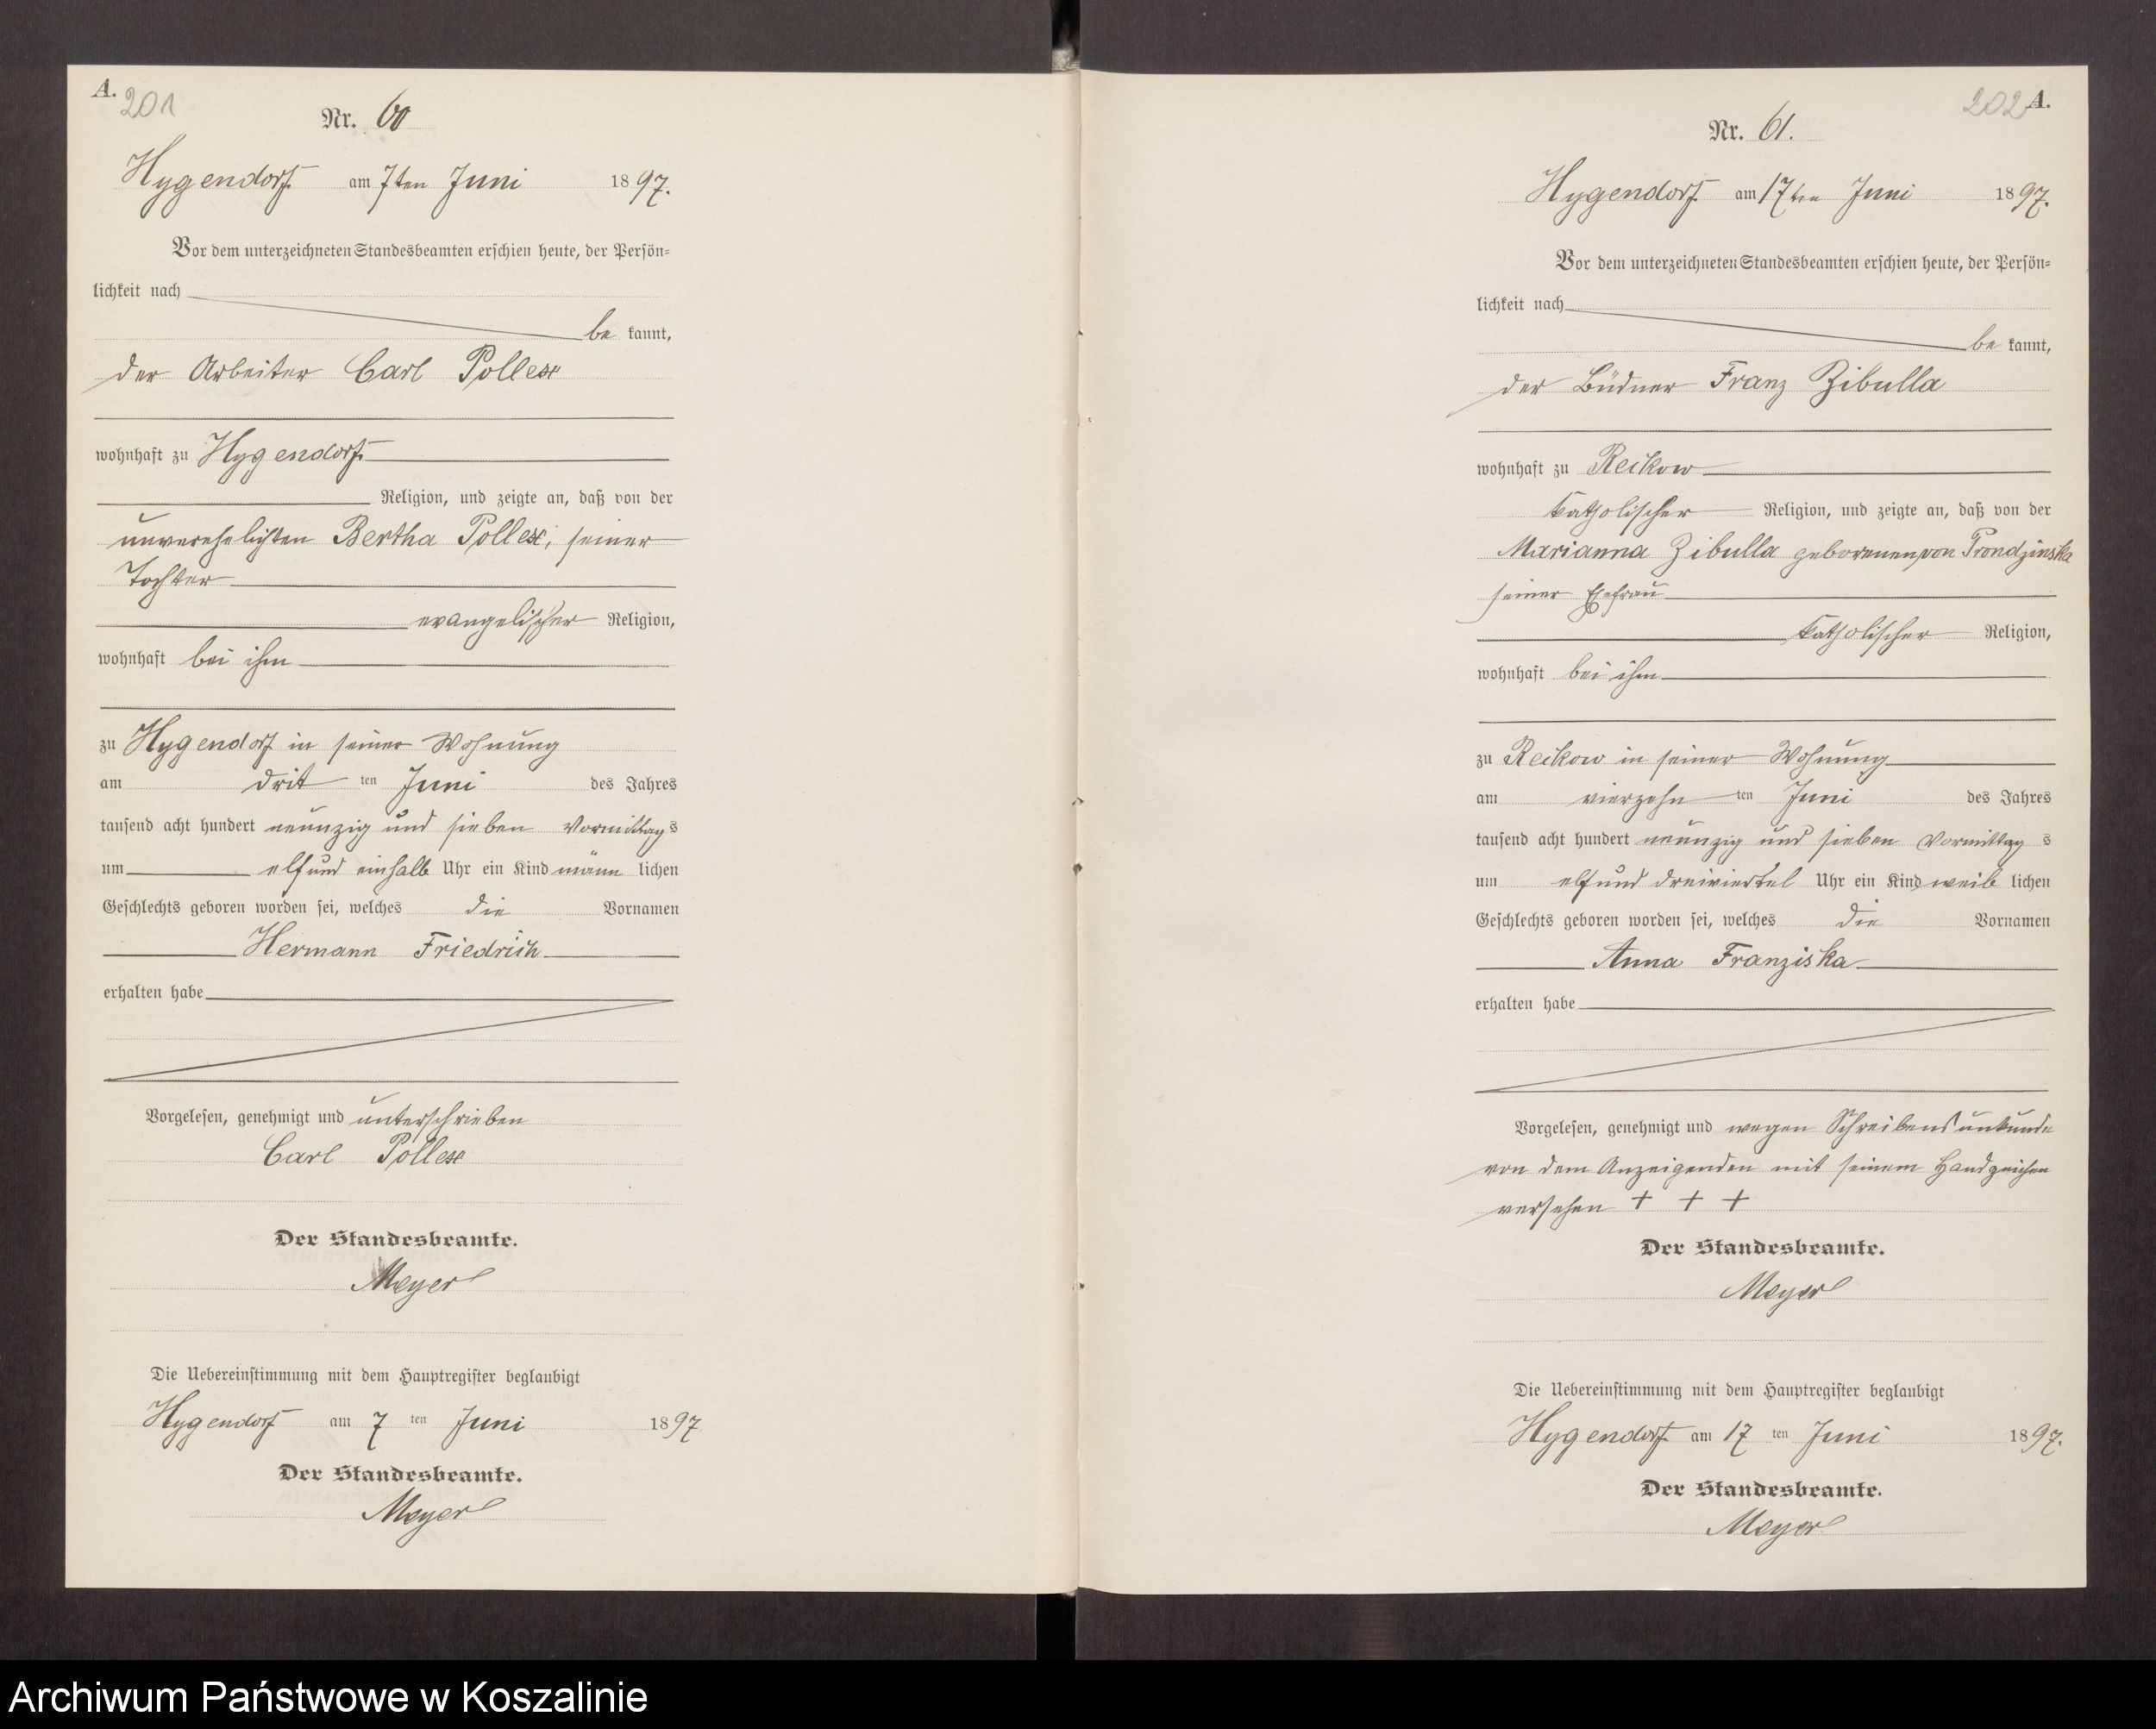 A.
201
Nr. 60
Hygendorf am 7ten Juni 1897.
Vor dem unterzeichneten Standesbeamten erschien heute, der Persön-
lichkeit nach
be kannt,
der Arbeiter Carl Pollex
wohnhaft zu Hygendorf
Religion, und zeigte an, daß von der
unverehelichten Bertha Pollex, seiner
Tochter
evangelischer Religion,
wohnhaft bei ihm
zu Hygendorf in seiner Wohnung
am drit ten Juni des Jahres
tausend acht hundert neunzig und sieben Vormittags
um elf und einhalb Uhr ein Kind männ lichen
Geschlechts geboren worden sei, welches die Vornamen
Hermann Friedrich
erhalten habe
Vorgelesen, genehmigt und unterschrieben
Carl Pollex
Der Standesbeamte.
Meyer
Die Uebereinstimmung mit dem Hauptregister beglaubigt
Hygendorf am 7 ten Juni 1897
Der Standesbeamte.
Meyer
202 A.
Nr. 61.
Hygendorf am 17ten Juni 1897.
Vor dem unterzeichneten Standesbeamten erschien heute, der Persön-
lichkeit nach
be kannt,
der Büdner Franz Zibulla
wohnhaft zu Reikow
katholischer Religion, und zeigte an, daß von der
Marianna Zibulla geborenen von Prondzinska
seiner Ehefrau
katholischer Religion,
wohnhaft bei ihm
zu Reikow in seiner Wohnung
am vierzehn ten Juni des Jahres
tausend acht hundert neunzig und sieben Vormittag s
um elf und dreiviertel Uhr ein Kind weib lichen
Geschlechts geboren worden sei, welches die Vornamen
Anna Franziska
erhalten habe
Vorgelesen, genehmigt und wegen Schreibensunkunde
von dem Anzeigenden mit seinem Handzeichen
versehen + + +
Der Standesbeamte.
Meyer
Die Uebereinstimmung mit dem Hauptregister beglaubigt
Hygendorf am 17 ten Juni 1897.
Der Standesbeamte.
Meyer
Archiwum Państwowe w Koszalinie